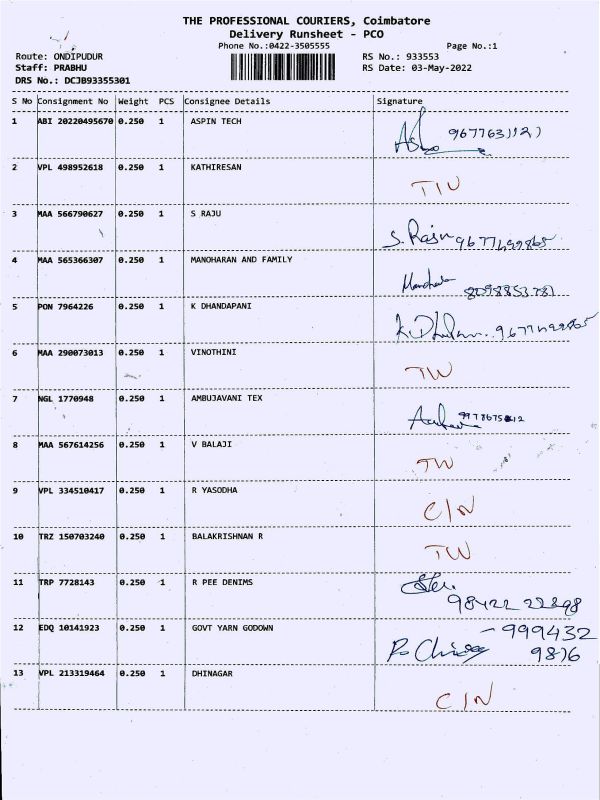 THE PROFESSIONAL COURIERS, Coimbatore
Delivery Runsheet - PCO
Phone No.:0422-3505555 Page No.:1
Route: ONDIPUDUR RS No.: 933553
Staff: PRABHU RS Date: 03-May-2022
DRS No.: DCJB93355301
S No Consignment No Weight PCS Consignee Details Signature
1 ABI 20220495670 0.250 1 ASPIN TECH
2 VPL 498952618 0.250 1 KATHIRESAN
3 MAA 566790627 0.250 1 S RAJU S. Raju 9677699865
4 MAA 565366307 0.250 1 MANOHARAN AND FAMILY
5 PON 7964226 0.250 1 K DHANDAPANI
6 MAA 290073013 0.250 1 VINOTHINI
7 NGL 1770948 0.250 1 AMBUJAVANI TEX
8 MAA 567614256 0.250 1 V BALAJI
9 VPL 334510417 0.250 1 R YASODHA C/N
10 TRZ 150703240 0.250 1 BALAKRISHNAN R
11 TRP 7728143 0.250 1 R PEE DENIMS
98422 22898
12 EDQ 10141923 0.250 1 GOVT YARN GODOWN - 999432
9816
13 VPL 213319464 0.250 1 DHINAGAR C/N